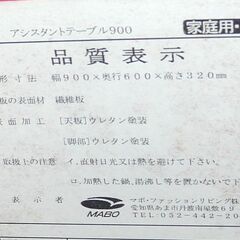 アシスタントテーブル900
家庭用・
品質表示
形寸法 幅900×奥行600×高さ320mm
板の表面材 繊維板
面加工 [天板]ウレタン塗装
[脚部]ウレタン塗装
取扱上の注意 イ.直射日光又は熱を避けて下さ
ロ.加熱した鍋、湯沸し等を置かないで下
表示者
MABO
マボ・ファッションリビング株
愛知県あま市丹波南屋敷69
TEL.052-442-20